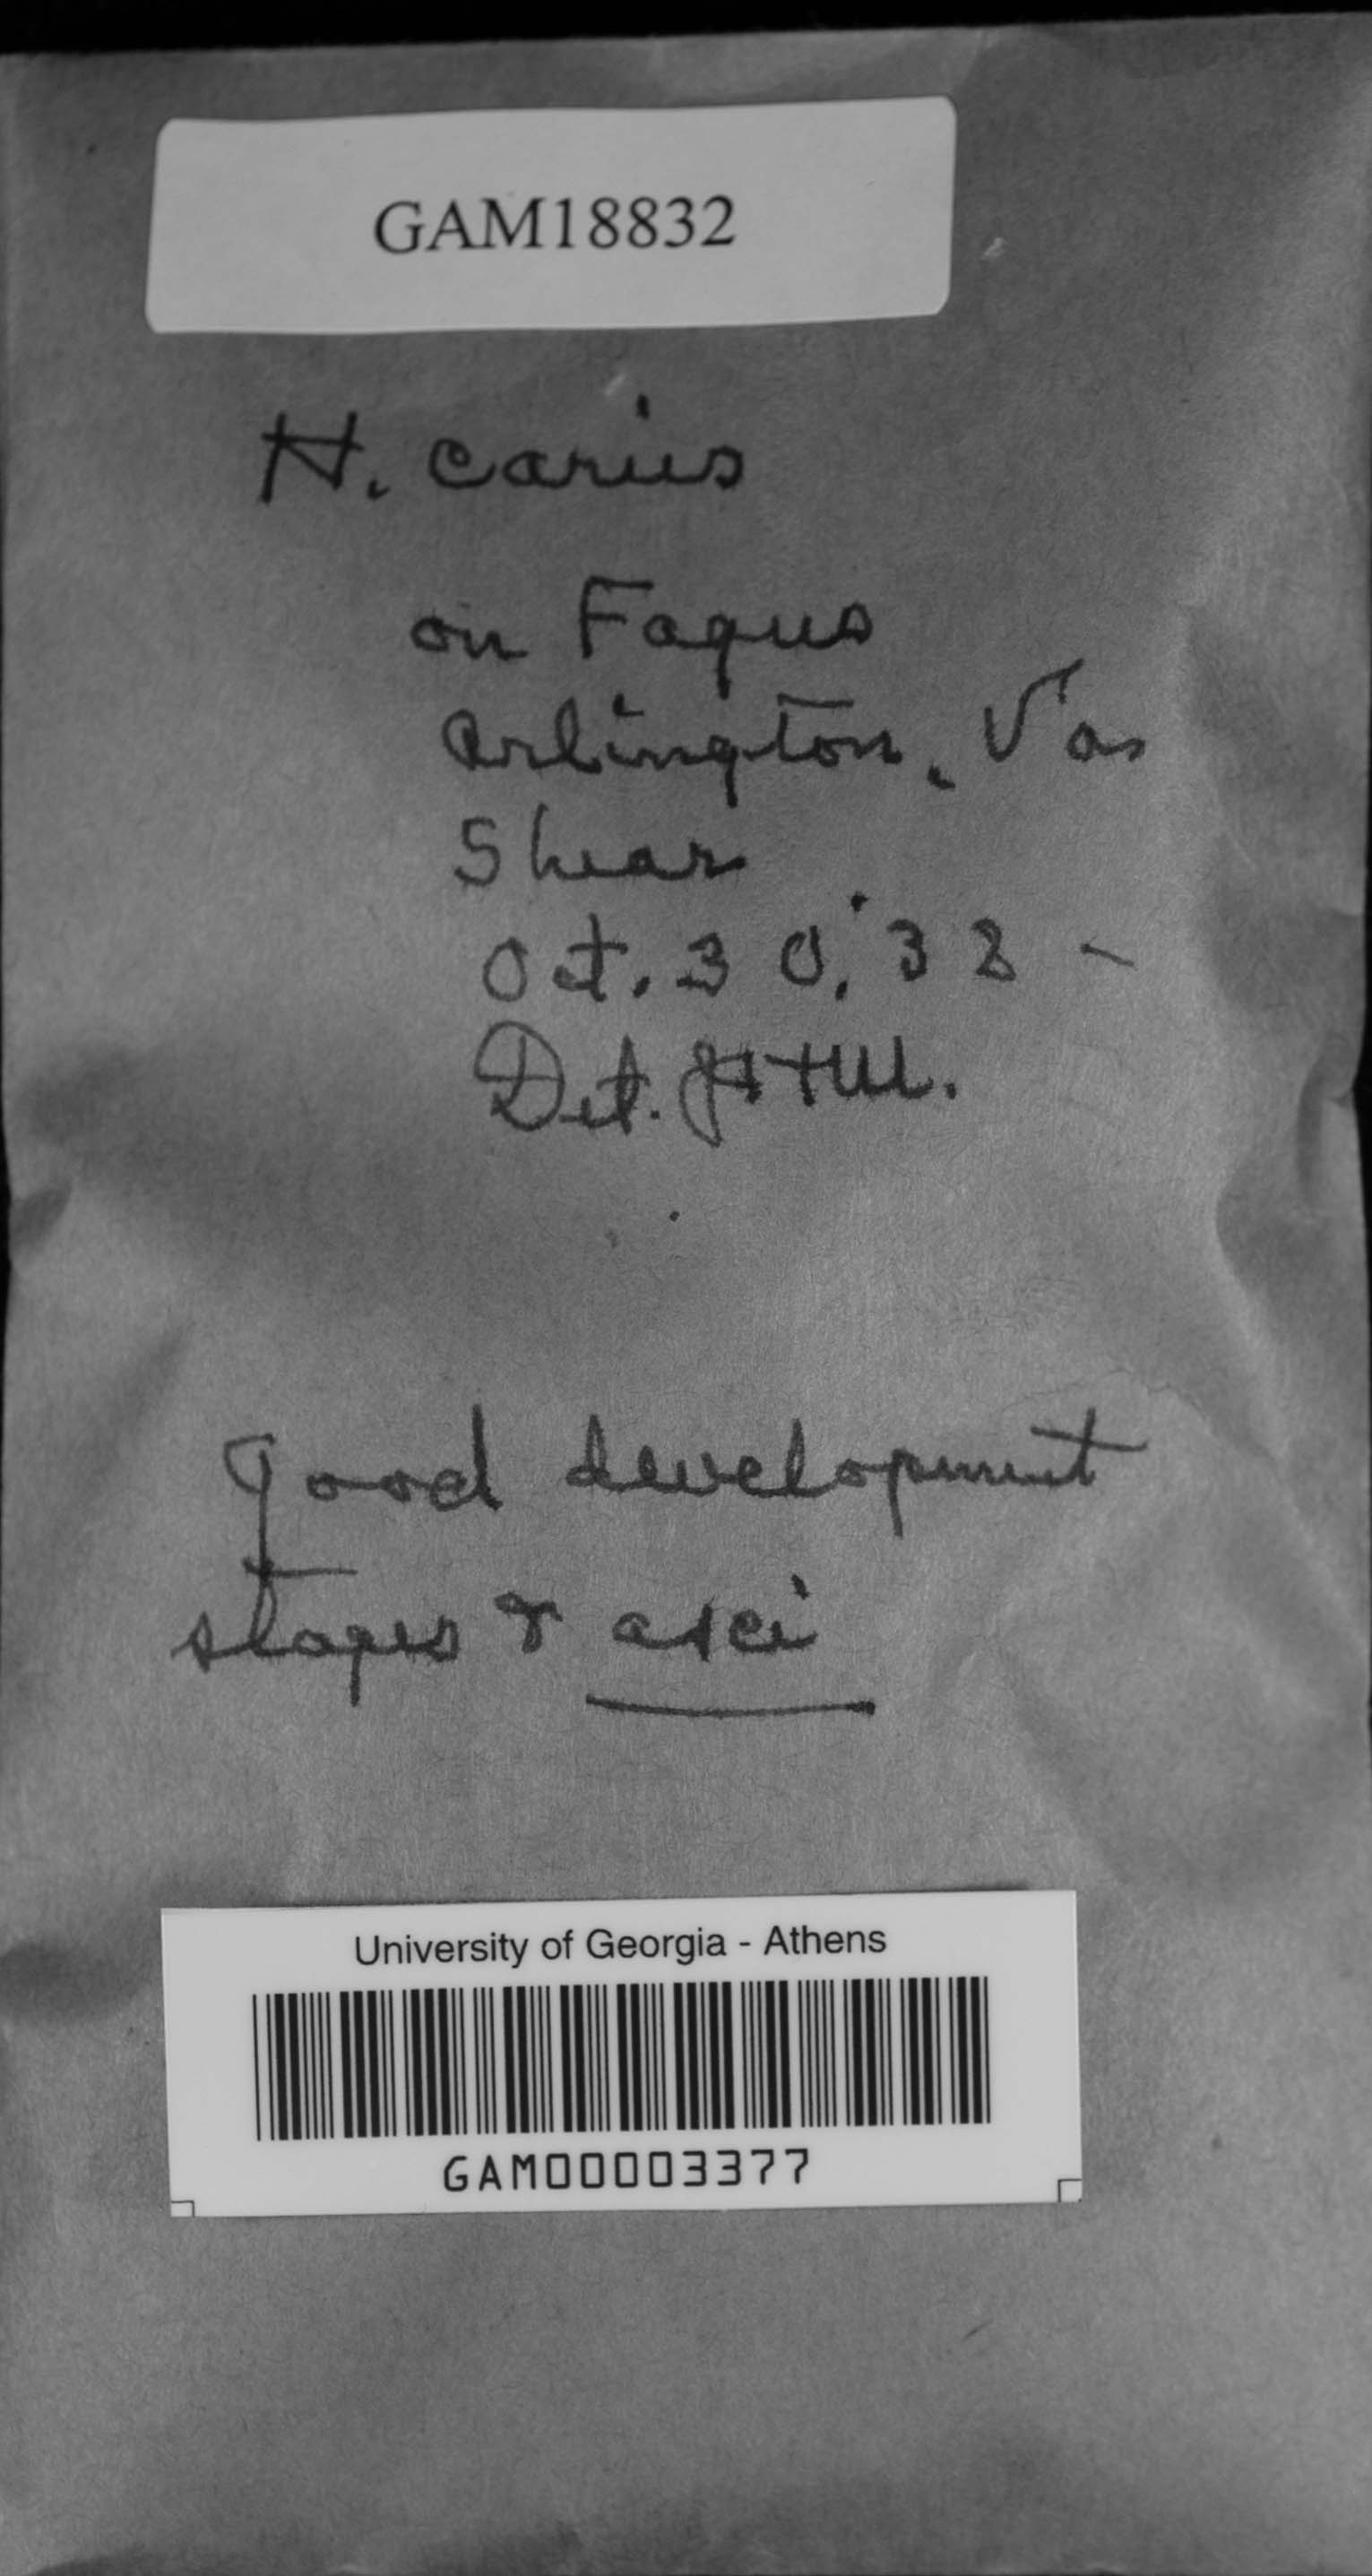 GAM18832
H. carius
on Fagus
Arlington, Va
Shear
Oct. 30, '32 -
Det. JHM.
Good development
stages & asci
University of Georgia - Athens
GAM00003377